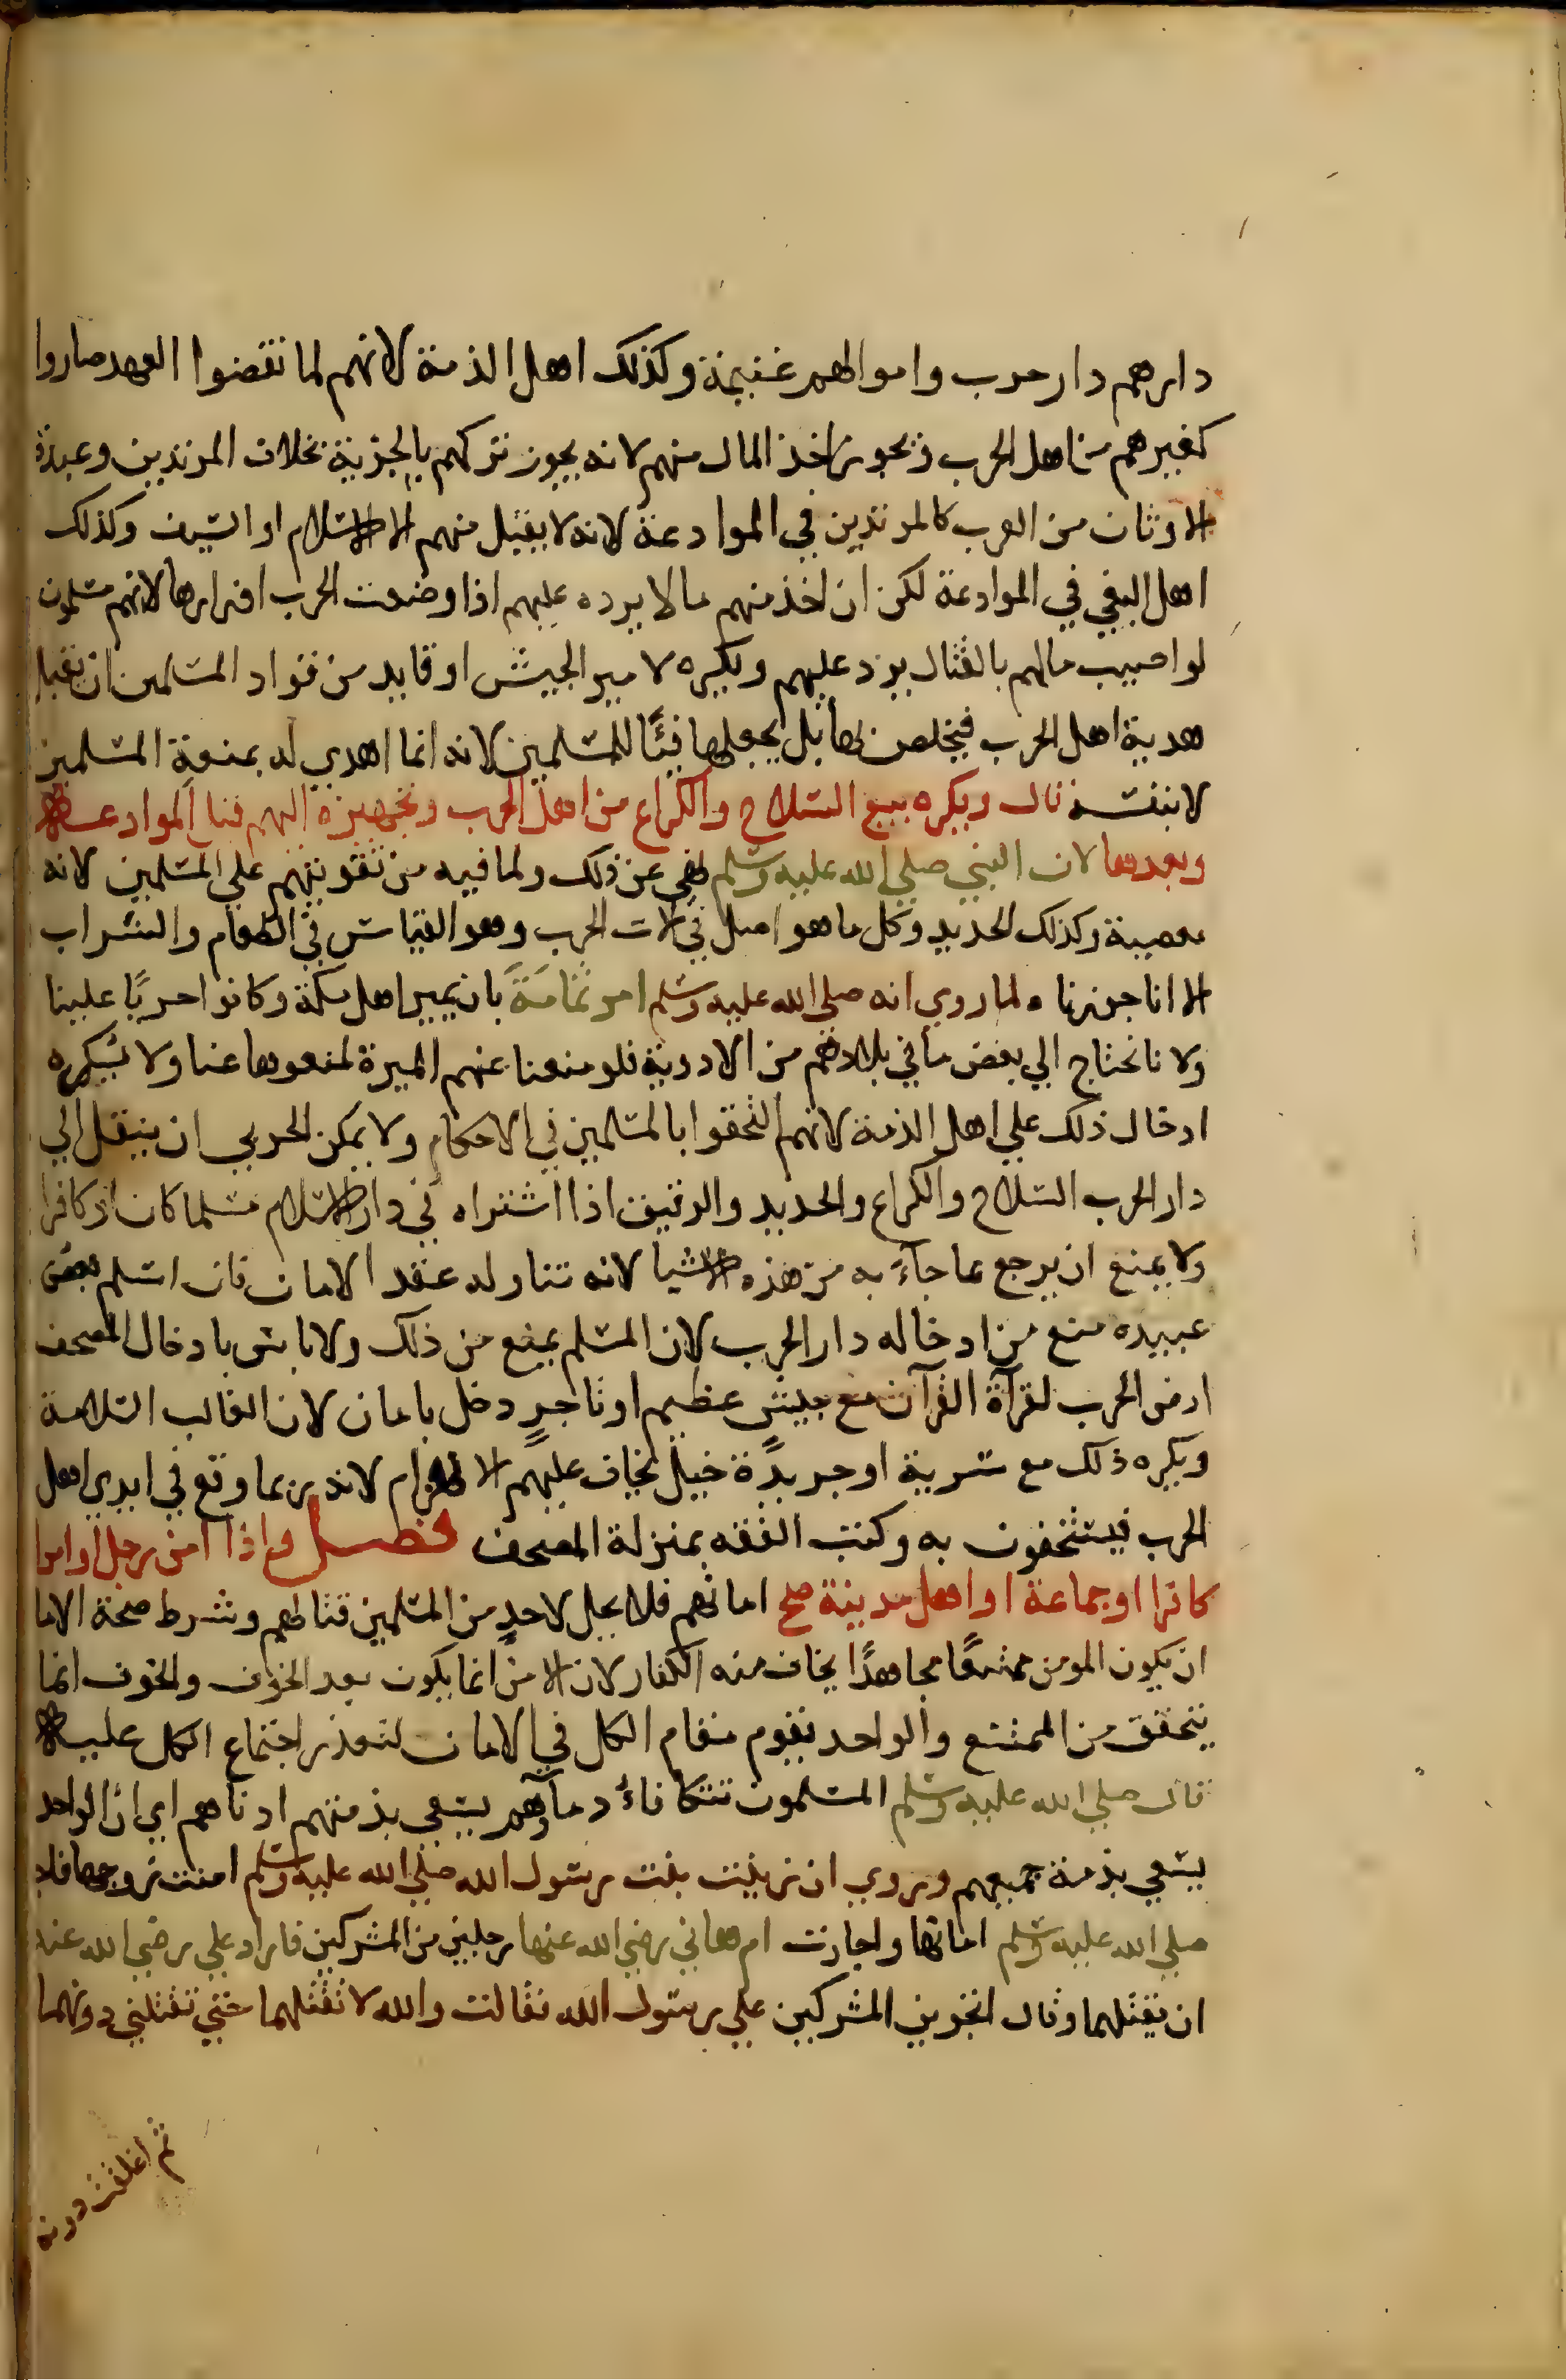 دارهم دار حرب واموالهم غنيمة وكذلك اهل الذمة لانهم لما نقضوا العهد صاروا
كغيرهم من اهل الحرب وتجوز اخذ المال منهم لانه يجوز تركهم بالجزية بخلاف المرتدين وعبدة
الاوثان من العرب كالمرتدين في الموادعة لانه لا يقبل منهم الا الاسلام او السيف وكذلك
اهل البغي في الموادعة لكن ان اخذ منهم مالا يرده عليهم اذا وضعت الحرب اوزارها لانهم مسلمون
لو اصيب مالهم بالقتال يرد عليهم ويكره لامير الجيش او قايد من قواد المسلمين ان يقبل
هدية اهل الحرب فيختص بها بل يجعلها فيئًا للمسلمين لانه انما اهدي له بمنعة المسلمين
لا بنفسه قال ويكره بيع السلاح والكراع من اهل الحرب وتجهيزه اليهم قبل الموادعة
وبعدها لان النبي صلي الله عليه وسلم نهي عن ذلك ولما فيه من تقويتهم علي المسلمين لانه
معصية وكذلك الحديد وكل ما هو اصل في الات الحرب وهو القياس في الطعام والشراب
الا انا جوزنا ولما روي انه صلي الله عليه وسلم امر ثمامَةَ بان يمير اهل مكة وكانوا حربًا علينا
ولانا نحتاج الي بعض ما في بلادهم من الادوية فلو منعنا عنهم الميرة لمنعوها عنا ولا يكره
ادخال ذلك علي اهل الذمة لانهم التحقوا بالمسلمين في الاحكام ولا يمكن الحربي ان ينقل الي
دار الحرب السلاح والكراع والحديد والرقيق اذا اشتراه في دار الاسلام مسلما كان او كافرا
ولا يمنع ان يرجع بما جاء به من هذه الاشيا لانه تناوله عقد الامان فان اسلم بعض
عبيده منع من ادخاله دار الحرب لان المسلم يمنع من ذلك ولا باس بادخال المصحف
ارض الحرب لقرآة القرآن مع جيش عظيم او تاجرٍ دخل بامان لان الغالب السلامة
ويكره ذلك مع سرية او جريدة خيل يخاف عليهم الانهزام لانه ربما وقع في ايدي اهل
الحرب فيستخفون به وكتب الفقه بمنزلة المصحف فصل واذا امن رجل او امرا
كافرا او جماعة او اهل مدينة صح امانهم فلا يحل لاحدٍ من المسلمين قتالهم وشرط صحة الاما
ان يكون المومن ممتنعًا مجاهدًا يخاف منه الكفار لان الامن انما يكون بعد الخوف والخوف انما
يتحقق من الممتنع والواحد يقوم مقام الكل في الامان لتعذر اجتماع الكل عليه
قال صلي الله عليه وسلم المسلمون تتكافاء دمآؤهم يسعي بذمتهم ادناهم اي ان الواحد
يسعي بذمة جميعهم وروي ان زينب بنت رسول الله صلي الله عليه وسلم امنت زوجها فاجاز
صلي الله عليه وسلم امانها واجارت ام هاني رضي الله عنها رجلين من المشركين فاراد علي رضي الله عنه
ان يقتلهما وقال اتجيرين المشركين علي رسول الله فقالت والله لا تقتلهما حتي تقتلني دونهما
ثم اغلقت دونه